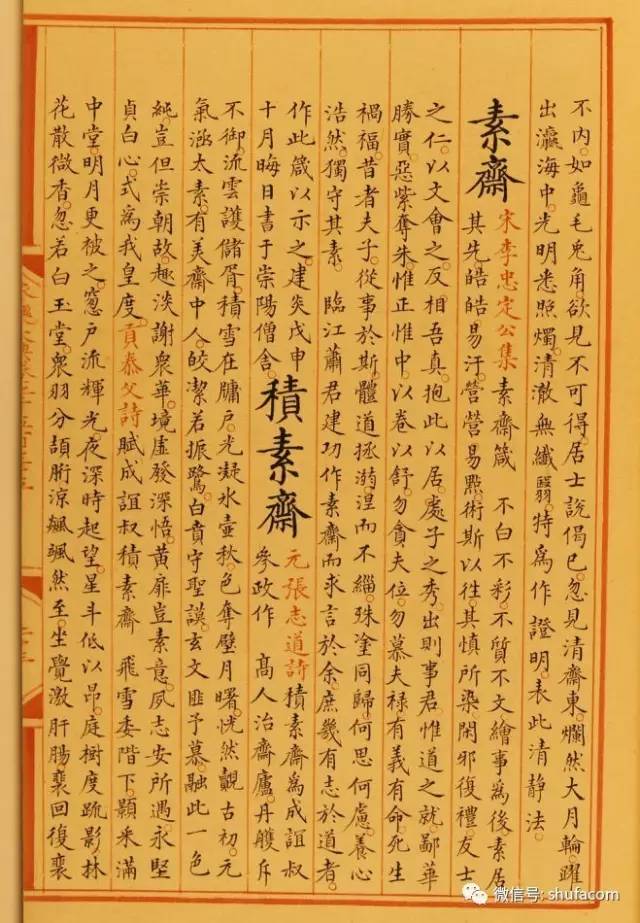 不內如龜毛兔角欲見不可得居士說偈已忽見清齋東爛然大月輪躍
出瀛海中光明悉照燭清澈無纖翳特為作證明表此清静法
素齋 宋李忠定公集 素齋箴 不白不彩不質不文繪事為後素居
其先皓皓易汙營營易點術斯以徃其慎所染閑邪復禮友士
之仁以文會之反相吾真抱此以居處子之秀出則事君惟道之就鄙華
勝實惡紫奪朱惟正惟中以卷以舒勿貪夫位勿慕夫禄有義有命死生
禍福昔者夫子從事於斯體道拯溺涅而不緇殊塗同歸何思何慮養心
浩然獨守其素 臨江蕭君建功作素齋而求言於余庶幾有志於道者
作此箴以示之建炎戊申
十月晦日書于崇陽僧舍 積素齋 元張志道詩 積素齋為成誼叔
參政作 高人治齋廬丹雘斥
不御流雲護儲胥積雪在牖戶光凝氷壺秋色奪壁月曙恍然觀古初元
氣涵太素有美齋中人皎潔若振鷺白賁守聖謨玄文匪予慕融此一色
純豈但崇朝故趣淡謝衆華境虚發深悟黄扉豈素意夙志安所遇永堅
貞白心式為我皇度 貢泰父詩 賦成誼叔積素齋 飛雪委階下顥采滿
中堂明月更被之窻户流輝光夜深時起望星斗低以昂庭樹度疏影林
花散微香忽若白玉堂衆羽分頡胻涼飆颯然至坐覺激肝腸裴回復裴
微信号: shufacom